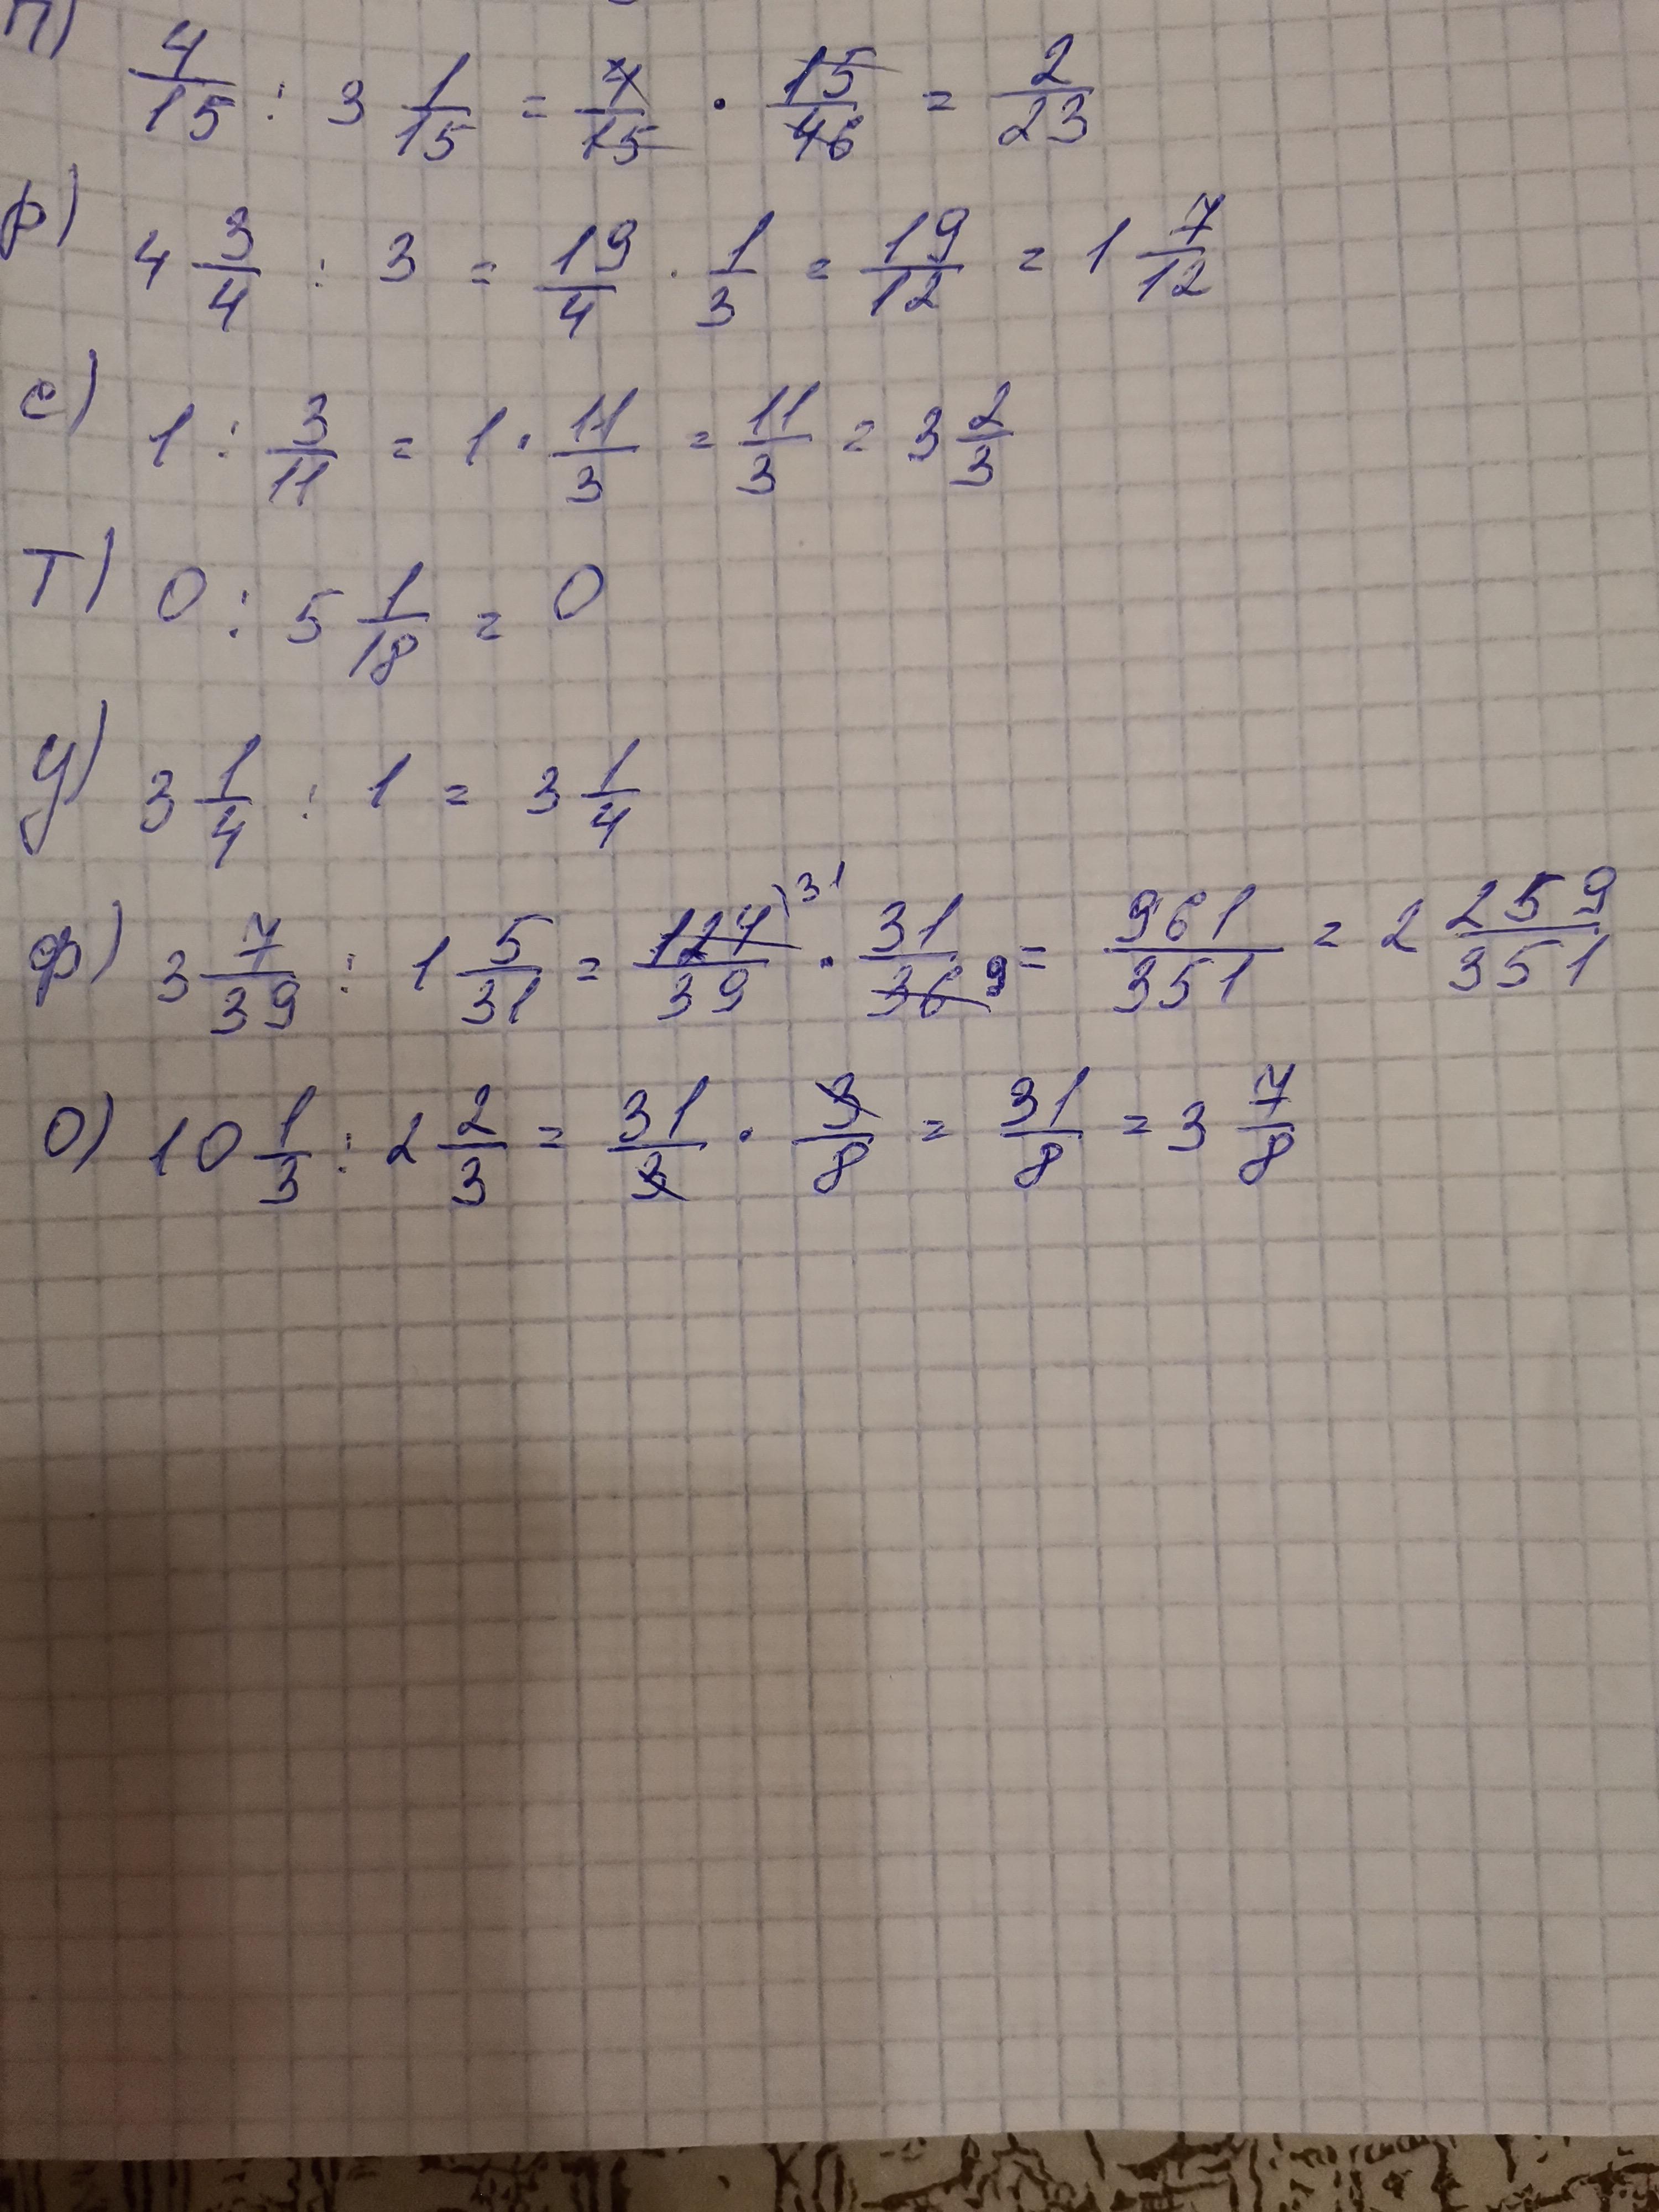 п) 4/15 : 3 1/15 = 4/15 · 15/46 = 2/23
р) 4 3/4 : 3 = 19/4 · 1/3 = 19/12 = 1 7/12
с) 1 : 3/11 = 1 · 11/3 = 11/3 = 3 2/3
т) 0 : 5 1/18 = 0
у) 3 1/4 : 1 = 3 1/4
ф) 3 7/39 : 1 5/31 = 124/39 31 · 31/36 9 = 961/351 = 2 259/351
о) 10 1/3 : 2 2/3 = 31/3 · 3/8 = 31/8 = 3 7/8